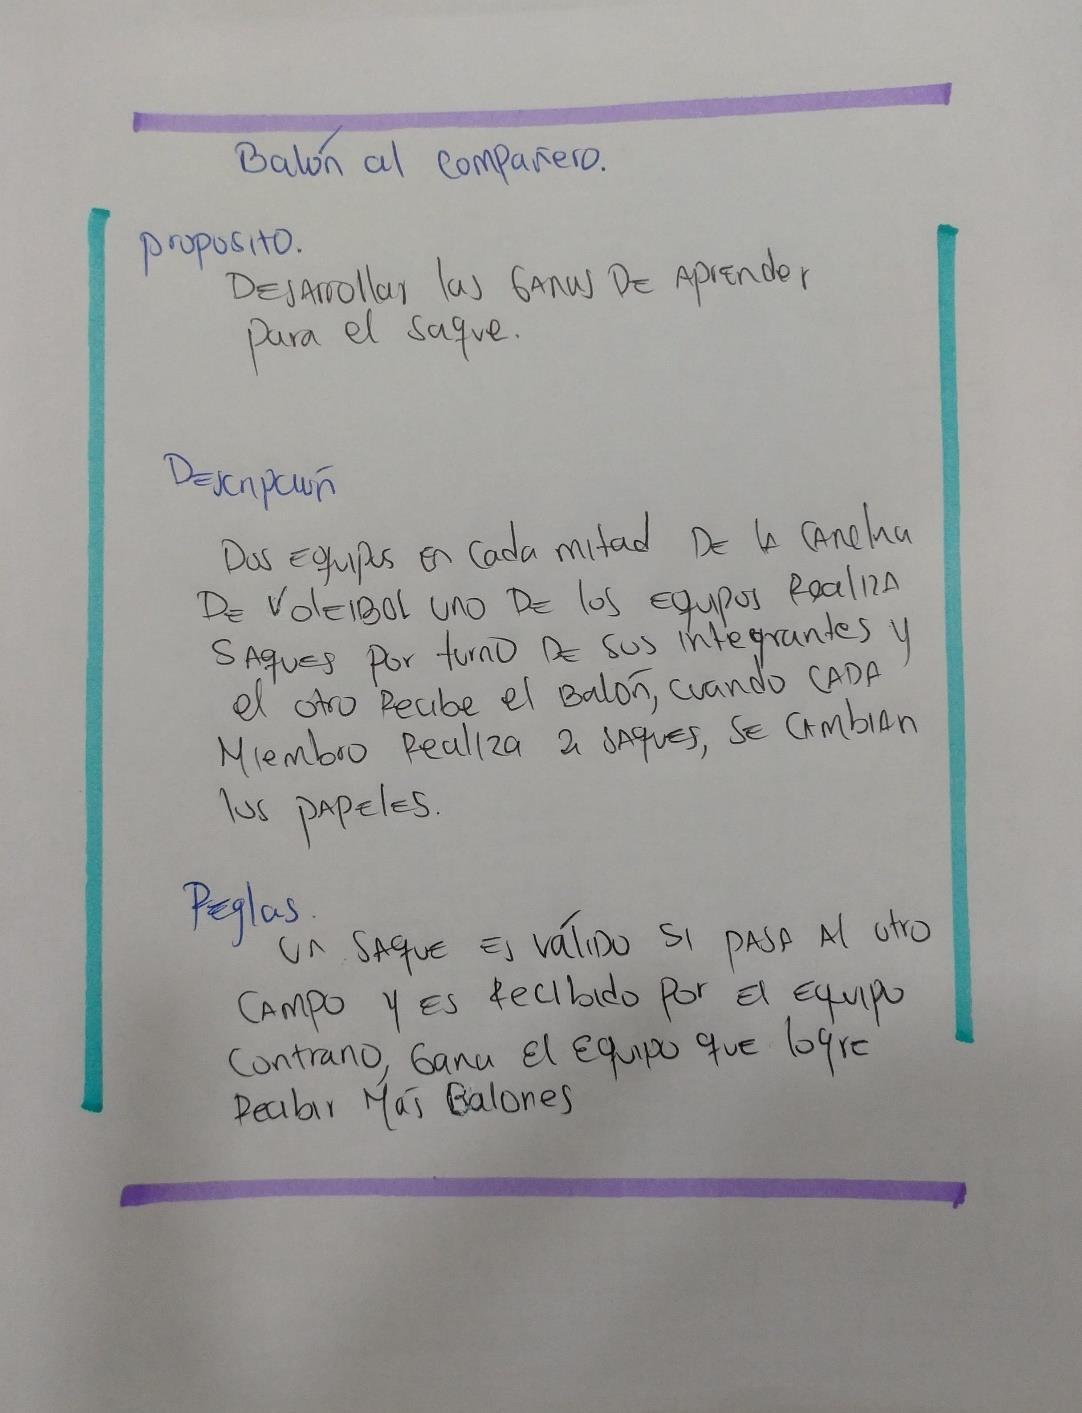 Balón al compañero.
proposito.
Desarrollar las Ganas De Aprender
para el saque.
Descripción
Dos equipos en cada mitad De la cancha
De Voleibol uno De los equipos Realiza
Saques por turno De sus integrantes y
el otro Recibe el Balón, cuando CADA
Miembro Realiza 2 saques, se cambian
los papeles.
Reglas.
un saque es válido si pasa al otro
campo y es Recibido por el equipo
contrario, Gana el equipo que logre
Recibir Más Balones